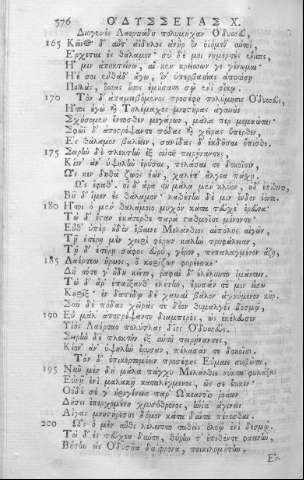 376 ΟΔΥΣΣΕΙΑΣ Χ.
Διογενὲς Λαερτιάδη πολυμήχαν' Ὀδυσσεῦ,
165 Κεῖνος δ' αὖτ' ἀΐδηλος ἀνὴρ ὃν ὀϊόμεθ' αὐτοὶ,
Ἔρχεται ἐς θάλαμον· σὺ δέ μοι νημερτὲς ἐνίσπες
Ἤ μιν ἀποκτείνω, αἴ κεν κρείσσων γε γένωμαι
Ἠέ σοι ἐνθάδ' ἄγω, ἵν' ὑπερβασίας ἀποτίσῃ
Πολλὰς, ὅσσας ἐμήσατο σῷ ἐνὶ οἴκῳ.
170 Τὸν δ' ἀπαμειβόμενος προσέφη πολύμητις Ὀδυσσεύς
Ἤτοι ἐγὼ καὶ Τηλέμαχος μνηστῆρας ἀγαυοὺς
Σχήσομεν ἔντοσθεν μεγάρων, μάλα περ μεμαῶτας·
Σφῶϊ δ' ἀποστρέψαντε πόδας καὶ χεῖρας ὕπερθεν,
Ἐς θάλαμον βαλέειν, σανίδας δ' ἐκδῆσαι ὄπισθεν
175 Σειρὴν δὲ πλεκτὴν ἐξ αὐτοῦ πειρήναντε,
Κίον' ἀν' ὑψηλὴν ἐρύσαι, πελάσαι τε δοκοῖσιν,
Ὥς κεν δηθὰ ζωὸς ἐὼν, χαλέπ' ἄλγεα πάσχῃ.
Ὣς ἔφαθ', οἱ δ' ἄρα τοῦ μάλα μὲν κλύον, ἠδ' ἐπίθοντο,
Βὰν δ' ἴμεν ἐς θάλαμον· λαθέτην δέ μιν ἔνδον ἐόντα.
180 Ἤτοι ὁ μὲν θαλάμοιο μυχὸν κάτα τεύχε' ἐρεύνα·
Τὼ δ' ἔσταν ἑκάτερθε παρὰ σταθμοῖσι μένοντε·
Εὖθ' ὑπὲρ οὐδὸν ἔβαινε Μελάνθιος αἰπόλος αἰγῶν,
Τῇ ἑτέρῃ μὲν χειρὶ φέρων καλὴν τρυφάλειαν,
Τῇ δ' ἑτέρῃ σάκος εὐρὺ, γέρον, πεπαλαγμένον ἄζῃ,
185 Λαέρτεω ἥρωος, ὃ κουρίζων φορέεσκε·
Δὴ τότε γ' ἤδη κεῖτο, ῥαφαὶ δ' ἐλέλυντο ἱμάντων.
Τὼ δ' ἄρ' ἐπαΐξανθ' ἑλέτην, ἔρυσάν τέ μιν εἴσω
Κουρίξ· ἐν δαπέδῳ δὲ χαμαὶ βάλον ἀχνύμενον κῆρ.
Σὺν δὲ πόδας χεῖράς τε δέον θυμαλγέϊ δεσμῷ,
190 Εὖ μάλ' ἀποστρέψαντε διαμπερὲς, ὡς ἐκέλευσεν
Υἱὸς Λαέρταο πολύτλας δῖος Ὀδυσσεύς.
Σειρὴν δὲ πλεκτὴν ἐξ αὐτοῦ πειρήναντε,
Κίον' ἀν' ὑψηλὴν ἔρυσαν, πέλασάν τε δοκοῖσι.
Τὸν δ' ἐπικερτομέων προσέφης Εὔμαιε συβῶτα,
195 Νῦν μὲν δὴ μάλα πάγχυ Μελάνθιε νύκτα φυλάξεις
Εὐνῇ ἐνὶ μαλακῇ καταλέγμενος, ὥς σε ἔοικεν·
Οὐδέ σέ γ' ἠριγένεια παρ' Ὠκεανοῖο ῥοάων
Λήσει ἐπερχομένη χρυσόθρονος, ἡνίκ' ἀγινεῖς
Αἶγας μνηστήρεσσι δόμον κάτα δαῖτα πένεσθαι.
200 Ὣς ὁ μὲν αὖθι λέλειπτο ταθεὶς ὀλοῷ ἐνὶ δεσμῷ.
Τὼ δ' ἐς τεύχεα δύντε, θύρην ἐπιθέντε φαεινὴν,
Βήτην εἰς Ὀδυσῆα δαΐφρονα, ποικιλομήτην.